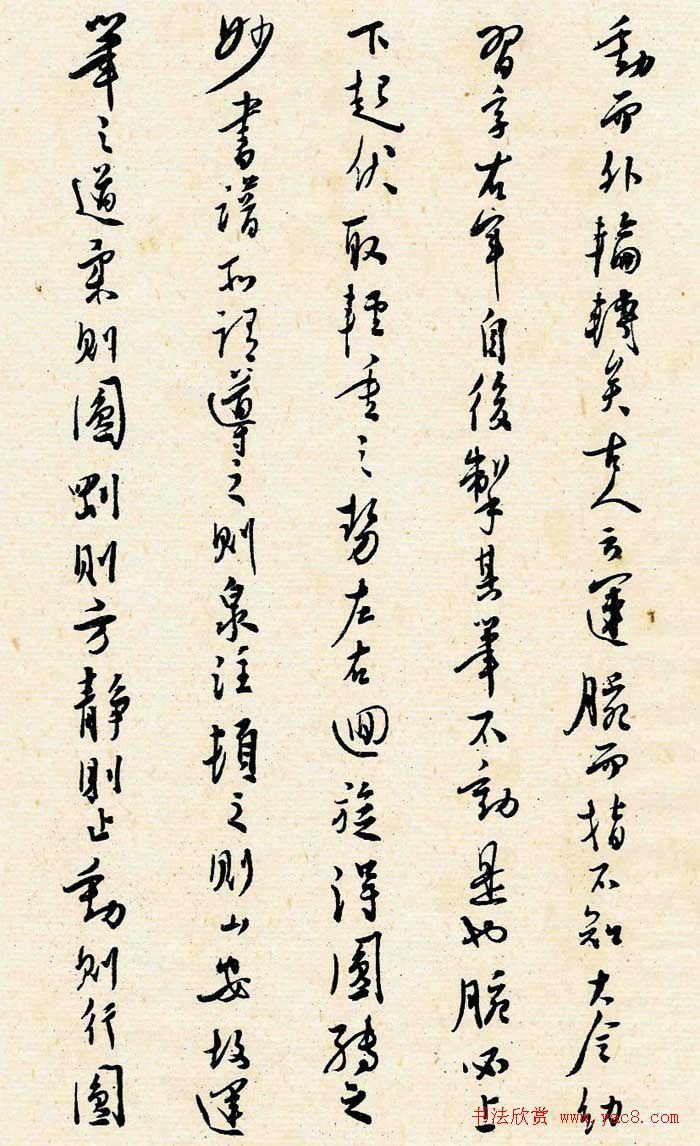 動而外輪轉矣古人云運腕而指不知大令幼
習字右軍自後掣其筆不動是也腕必上
下起伏取輕重之勢左右迴旋得圓轉之
妙書譜所謂導之則泉注頓之則山安故運
筆之道柔則圓剛則方靜則止動則行圓
书法欣赏 www.yac8.com